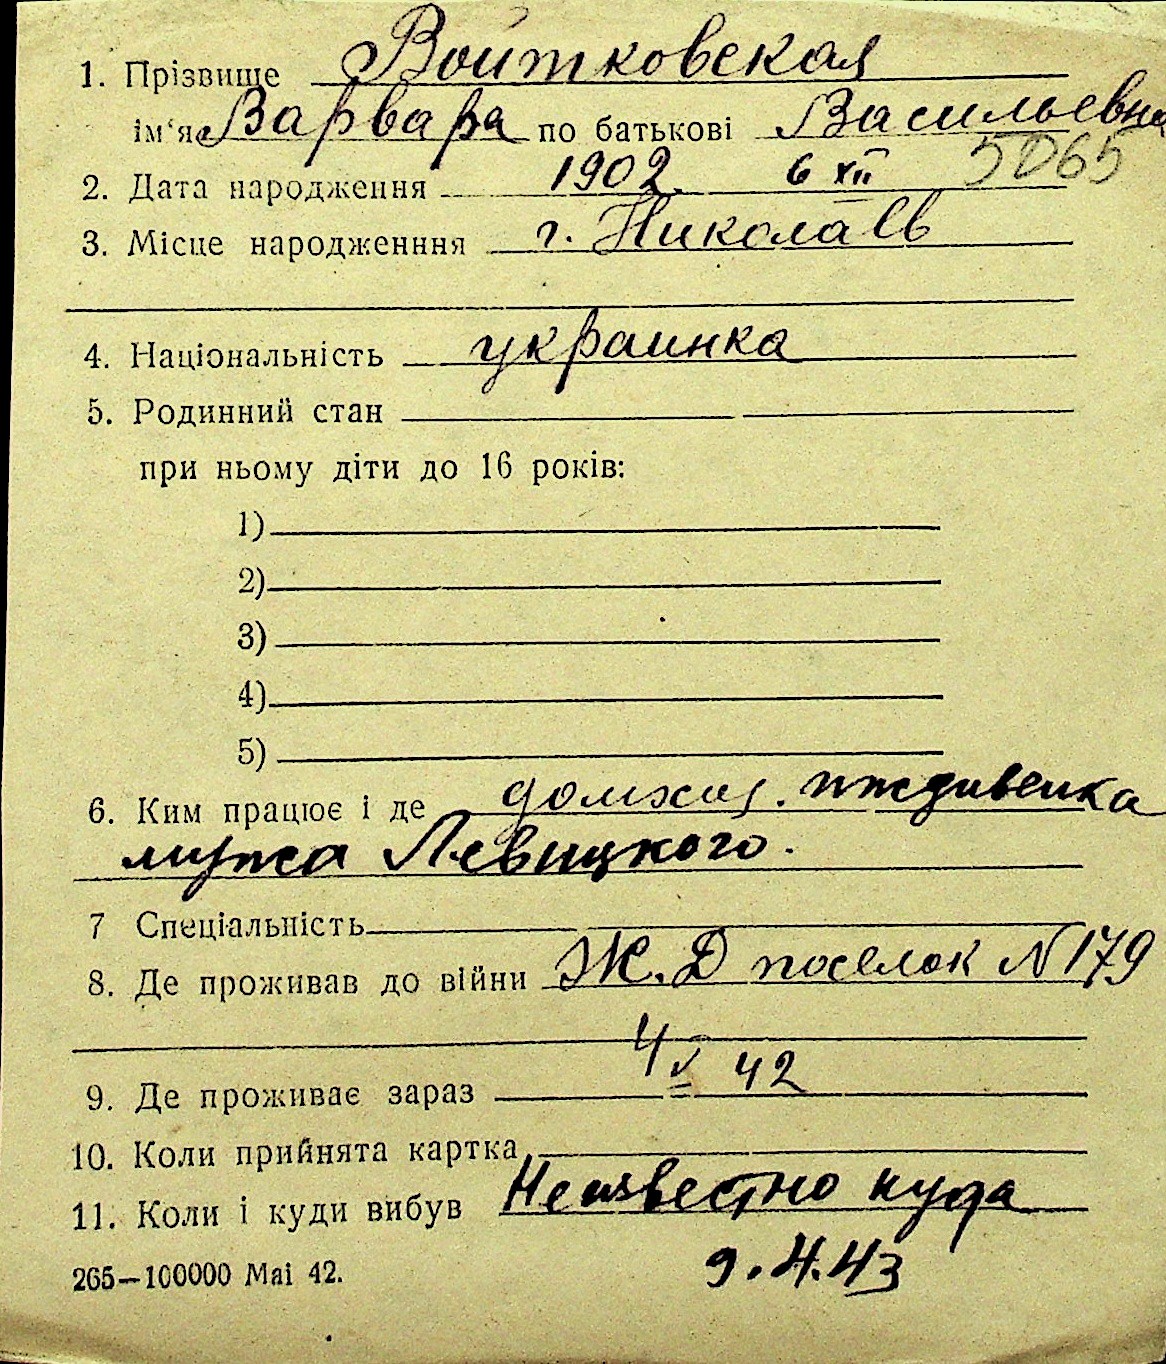 1. Прізвище Войтковская
ім'я Варвара по батькові Васильевна
5065
2. Дата народження 1902. 6 XII
3. Місце народженння г. Николаев
4. Національність украинка
5. Родинний стан
при ньому діти до 16 років:
1)
2)
3)
4)
5)
6. Ким працює і де домхоз. иждивенка
мужа Левицкого.
7 Спеціальність
8. Де проживав до війни Ж.Д поселок N 179
4 V 42
9. Де проживає зараз
10. Коли прийнята картка
11. Коли і куди вибув Неизвестно куда
265—100000 Mai 42.
9.4.43